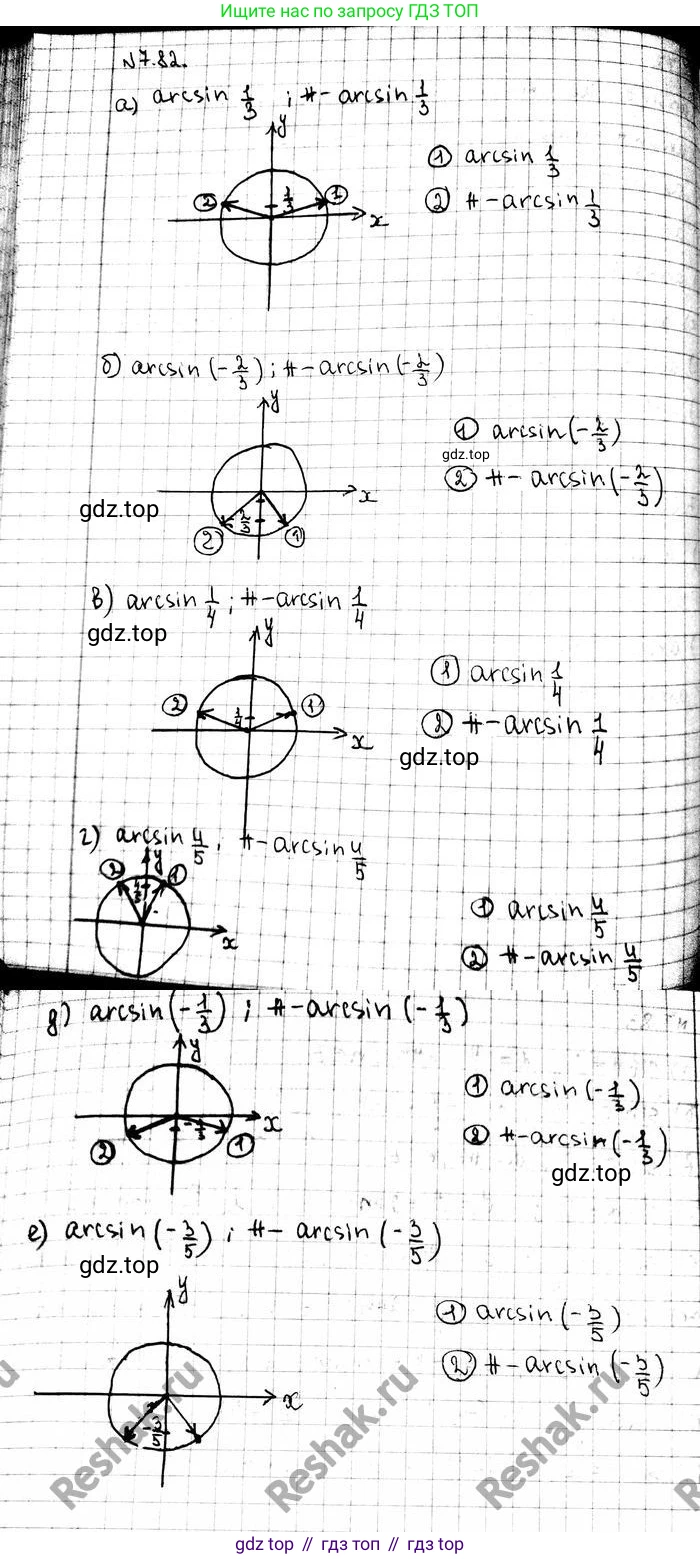 Ищите нас по запросу ГДЗ ТОП
№7.82.
а) arcsin 1/3 ; π - arcsin 1/3
y
① arcsin 1/3
② 1/3 ①
② π - arcsin 1/3
x
б) arcsin (-2/3) ; π - arcsin (-2/3)
y
① arcsin (-2/3)
gdz.top
② π - arcsin (-2/3)
x
gdz.top
② -2/3 ①
в) arcsin 1/4 ; π - arcsin 1/4
gdz.top
y
① arcsin 1/4
② 1/4 ①
② π - arcsin 1/4
x
gdz.top
г) arcsin 4/5 ; π - arcsin 4/5
y
② 4/5 ①
① arcsin 4/5
x
② π - arcsin 4/5
д) arcsin (-1/3) ; π - arcsin (-1/3)
y
① arcsin (-1/3)
x
② -1/3 ①
② π - arcsin (-1/3)
gdz.top
е) arcsin (-3/5) ; π - arcsin (-3/5)
gdz.top
y
① arcsin (-3/5)
② π - arcsin (-3/5)
x
-3/5
Reshak.ru
Reshak.ru
Reshak.ru
gdz top // гдз топ // gdz.top